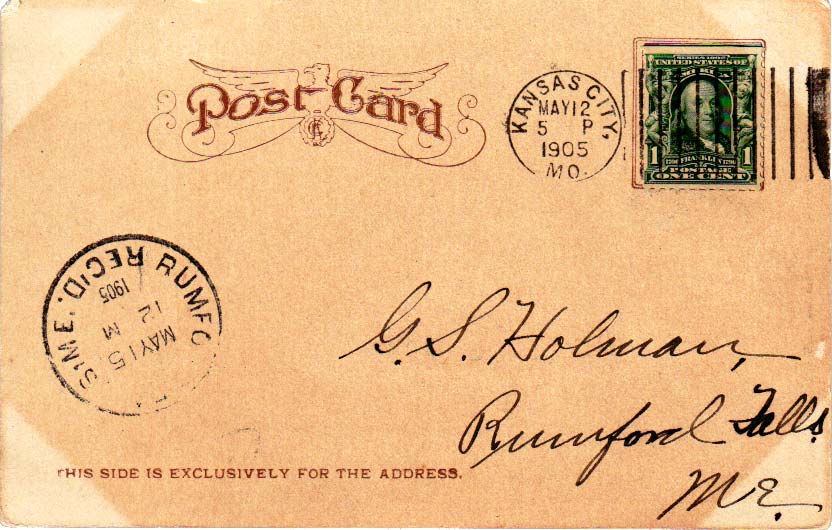 Post Card
KANSAS CITY,
MAY 12
5 P
1905
MO.
SERIES 1902
UNITED STATES OF
1 FRANKLIN 1
POSTAGE
ONE CENT
RUMFO
S, ME. REC'D.
MAY 15
12 M
1905
G. S. Holman,
Rumford Falls
Me.
THIS SIDE IS EXCLUSIVELY FOR THE ADDRESS.